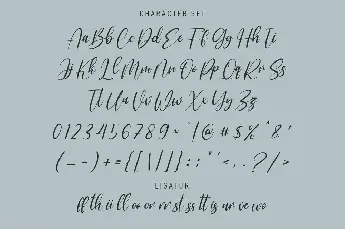 CHARACTER SET
Aa Bb Cc Dd Ee Ff Gg Hh Ii
Jj Kk Ll Mm Nn Oo Pp Qq Rr Ss
Tt Uu Vv Ww Xx Yy Zz
0 1 2 3 4 5 6 7 8 9 ~ ` ! @ # $ % ^ & *
( _ - ) + = { [ \ | ] } : ; " ' < , . ? / >
LIGATUR
ff th ii ll oo or rr st ss tt is ur ve wo